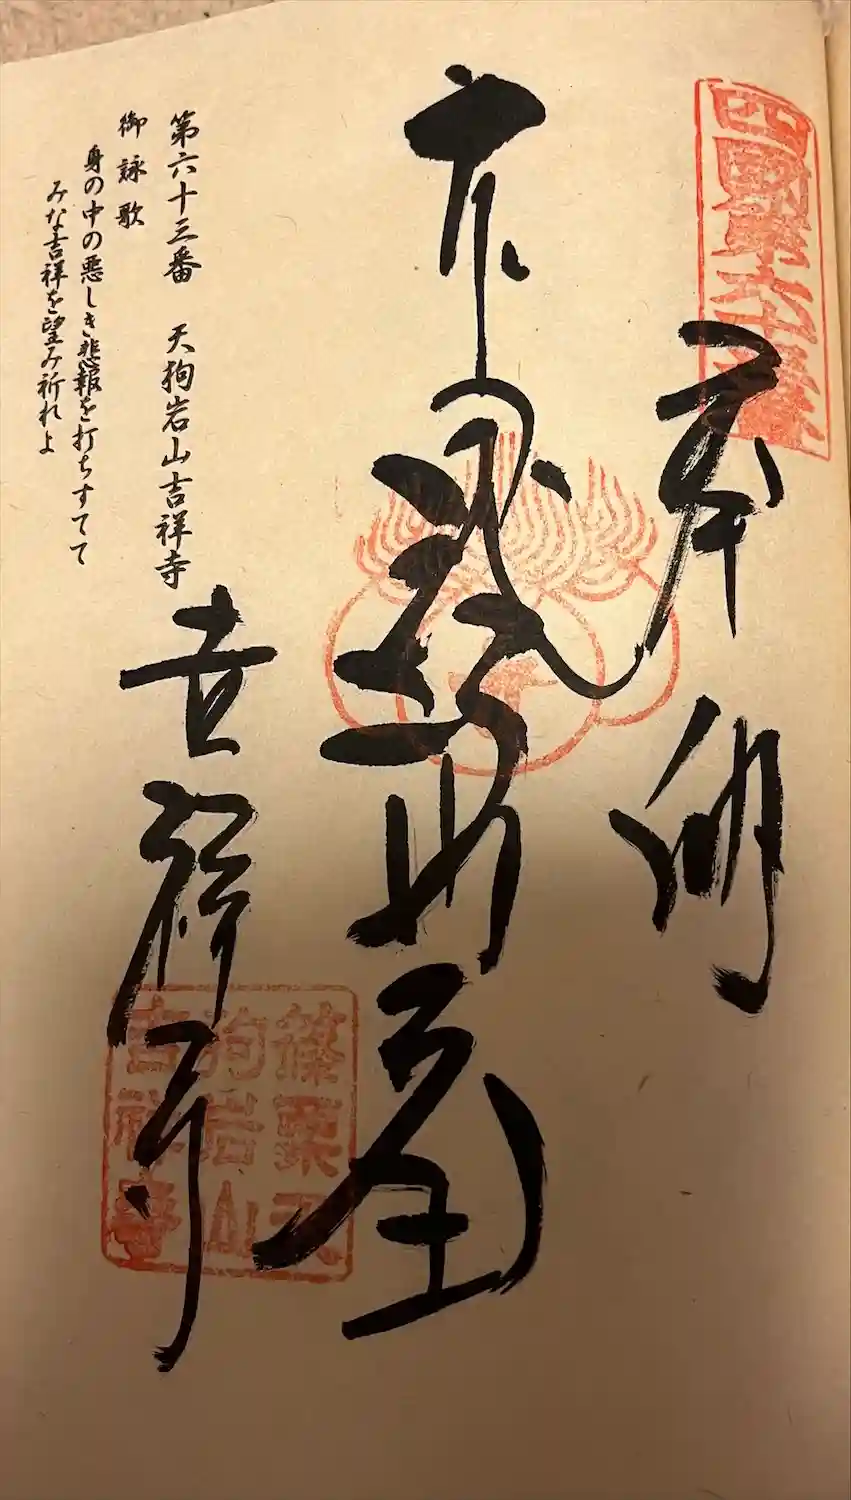 四國第六十三番
奉納
吉祥寺
篠栗天
狗岩山
吉祥寺
第六十三番　天狗岩山吉祥寺
御詠歌
身の中の悪しき悲報を打ちすてて
みな吉祥を望み祈れよ